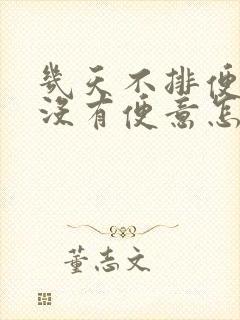 幾天不排便
沒有便意怎
董志文